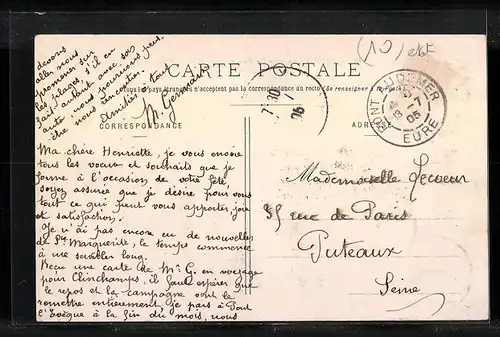 (10) etF
CARTE POSTALE
Tous les pays étrangers n'acceptent pas la correspondance au recto (Se renseigner à la Poste)
CORRESPONDANCE
ADRESSE
PONT AUDEMER
EURE
7 30
Ma chère Henriette, je vous envoie
tous les voeux et souhaits que je
forme à l'occasion de votre fête,
soyez assurée que je désire pour vous
tout ce qui peut vous apporter joie
et satisfaction.
Je n'ai pas encore eu de nouvelles
de Ste Marguerite, le temps commence
à me sembler long.
Reçu une carte de Mr G. en voyage
pour Clinchamps, il faut espérer que
le repos et la campagne vont le
remettre entièrement je pars à Pont
l'Evêque à la fin du mois, nous
devons
aller nous
promener sur
les plages, s'il en
fait autant avec son
auto nous pourrions peut
être nous rencontrer.
Amitiés à tous
M. Germain
Mademoiselle Lecoeur
rue de Paris
Puteaux
Seine